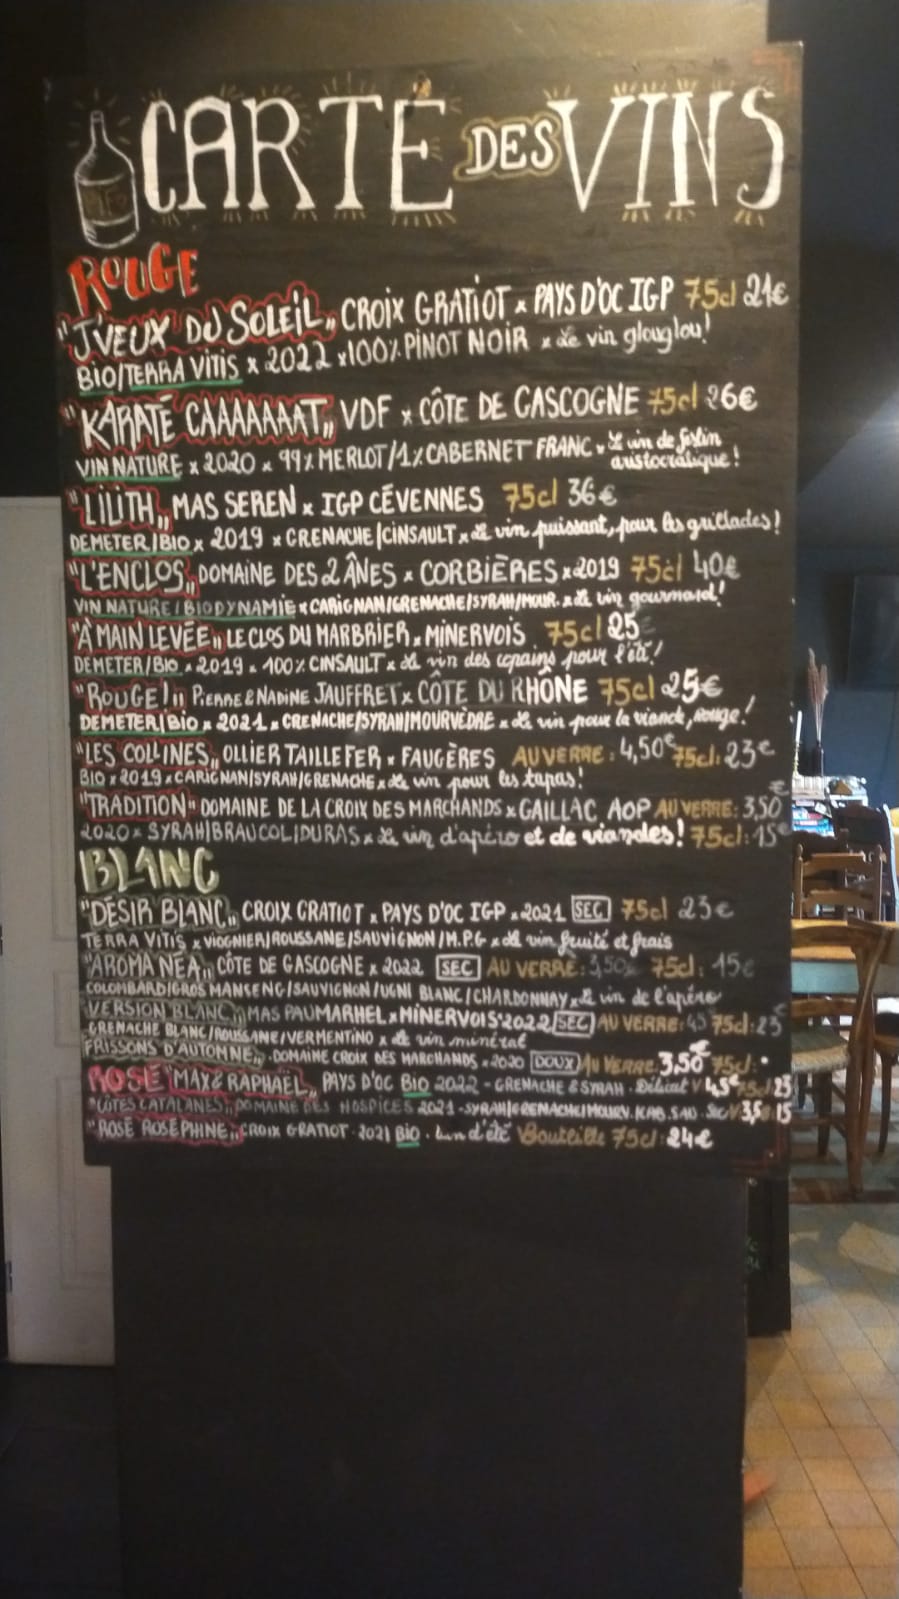 CARTE DES VINS
BIFO
ROUGE
"J'VEUX DU SOLEIL" CROIX GRATIOT x PAYS D'OC IGP 75cl 21€
BIO/TERRA VITIS x 2022 x 100% PINOT NOIR x Le vin glouglou!
"KARATÉ CAAAAAAAT" VDF x CÔTE DE GASCOGNE 75cl 26€
VIN NATURE x 2020 x 99% MERLOT/1% CABERNET FRANC x Le vin de festin aristocratique!
"LILITH" MAS SEREN x IGP CÉVENNES 75cl 36€
DEMETER/BIO x 2019 x GRENACHE/CINSAULT x Le vin puissant, pour les grillades!
"L'ENCLOS" DOMAINE DES 2 ÂNES x CORBIÈRES x 2019 75cl 40€
VIN NATURE/BIODYNAMIE x CARIGNAN/GRENACHE/SYRAH/MOUR. x Le vin gourmand!
"À MAIN LEVÉE" LE CLOS DU MARBRIER x MINERVOIS 75cl 25
DEMETER/BIO x 2019 x 100% CINSAULT x Le vin des copains pour l'été!
"ROUGE!" PIERRE & NADINE JAUFFRET x CÔTE DU RHÔNE 75cl 25€
DEMETER/BIO x 2021 x GRENACHE/SYRAH/MOURVÈDRE x Le vin pour la viande, rouge!
"LES COLLINES" OLLIER TAILLEFER x FAUGÈRES AU VERRE: 4,50€ 75cl: 23€
BIO x 2019 x CARIGNAN/SYRAH/GRENACHE x Le vin pour les tapas!
"TRADITION" DOMAINE DE LA CROIX DES MARCHANDS x GAILLAC AOP AU VERRE: 3,50€
2020 x SYRAH/BRAUCOL/DURAS x Le vin d'apéro et de viandes! 75cl: 15€
BLANC
"DÉSIR BLANC" CROIX GRATIOT x PAYS D'OC IGP x 2021 SEC 75cl 23€
TERRA VITIS x VIOGNIER/ROUSSANE/SAUVIGNON/M.P.G x Le vin fruité et frais
"AROMA NÉA" CÔTE DE GASCOGNE x 2022 SEC AU VERRE: 3,50€ 75cl: 15€
COLOMBARD/GROS MANSENG/SAUVIGNON/UGNI BLANC/CHARDONNAY x Le vin de l'apéro
"VERSION BLANC" MAS PAUMARHEL x MINERVOIS 2022 SEC AU VERRE: 75cl: 23€
GRENACHE BLANC/ROUSSANE/VERMENTINO x Le vin minéral
FRISSONS D'AUTOMNE" DOMAINE CROIX DES MARCHANDS x 2020 DOUX AU VERRE: 3,50€ 75cl:
ROSÉ "MAX & RAPHAËL" PAYS D'OC BIO 2022 - GRENACHE & SYRAH - Délicat V 4,5€ 75cl 23
"CÔTES CATALANES" DOMAINE DES HOSPICES 2021 - SYRAH/GRENACHE/MOURV. SEC V 3,5 15
"ROSÉ ROSÉPHINE" CROIX GRATIOT - 2021 BIO - d'été Bouteille 75cl: 24€